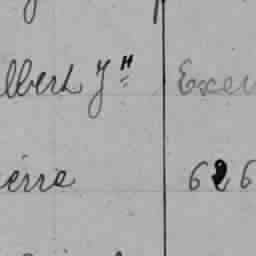 lbert Jh Exem
ierre 626